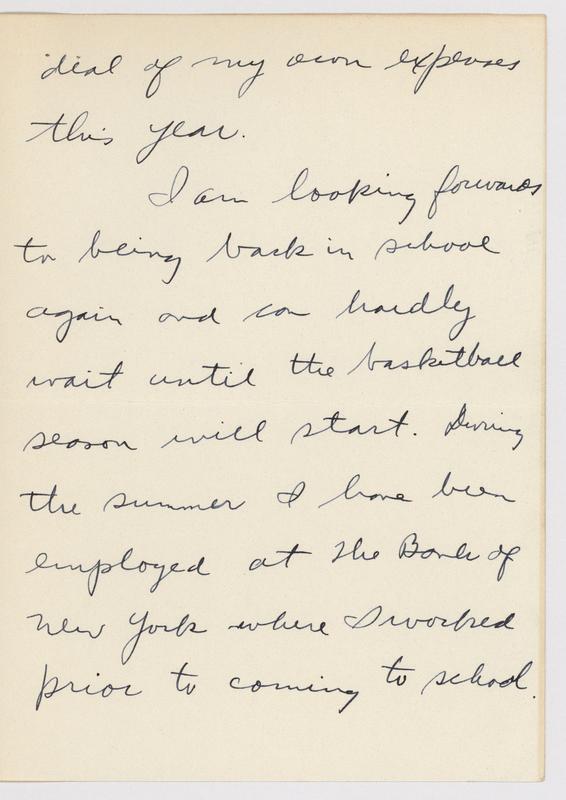 deal of my own expenses
this year.
I am looking forwards
to being back in school
again and can hardly
wait until the basketball
season will start. During
the summer I have been
employed at the Bank of
New York where I worked
prior to coming to school.